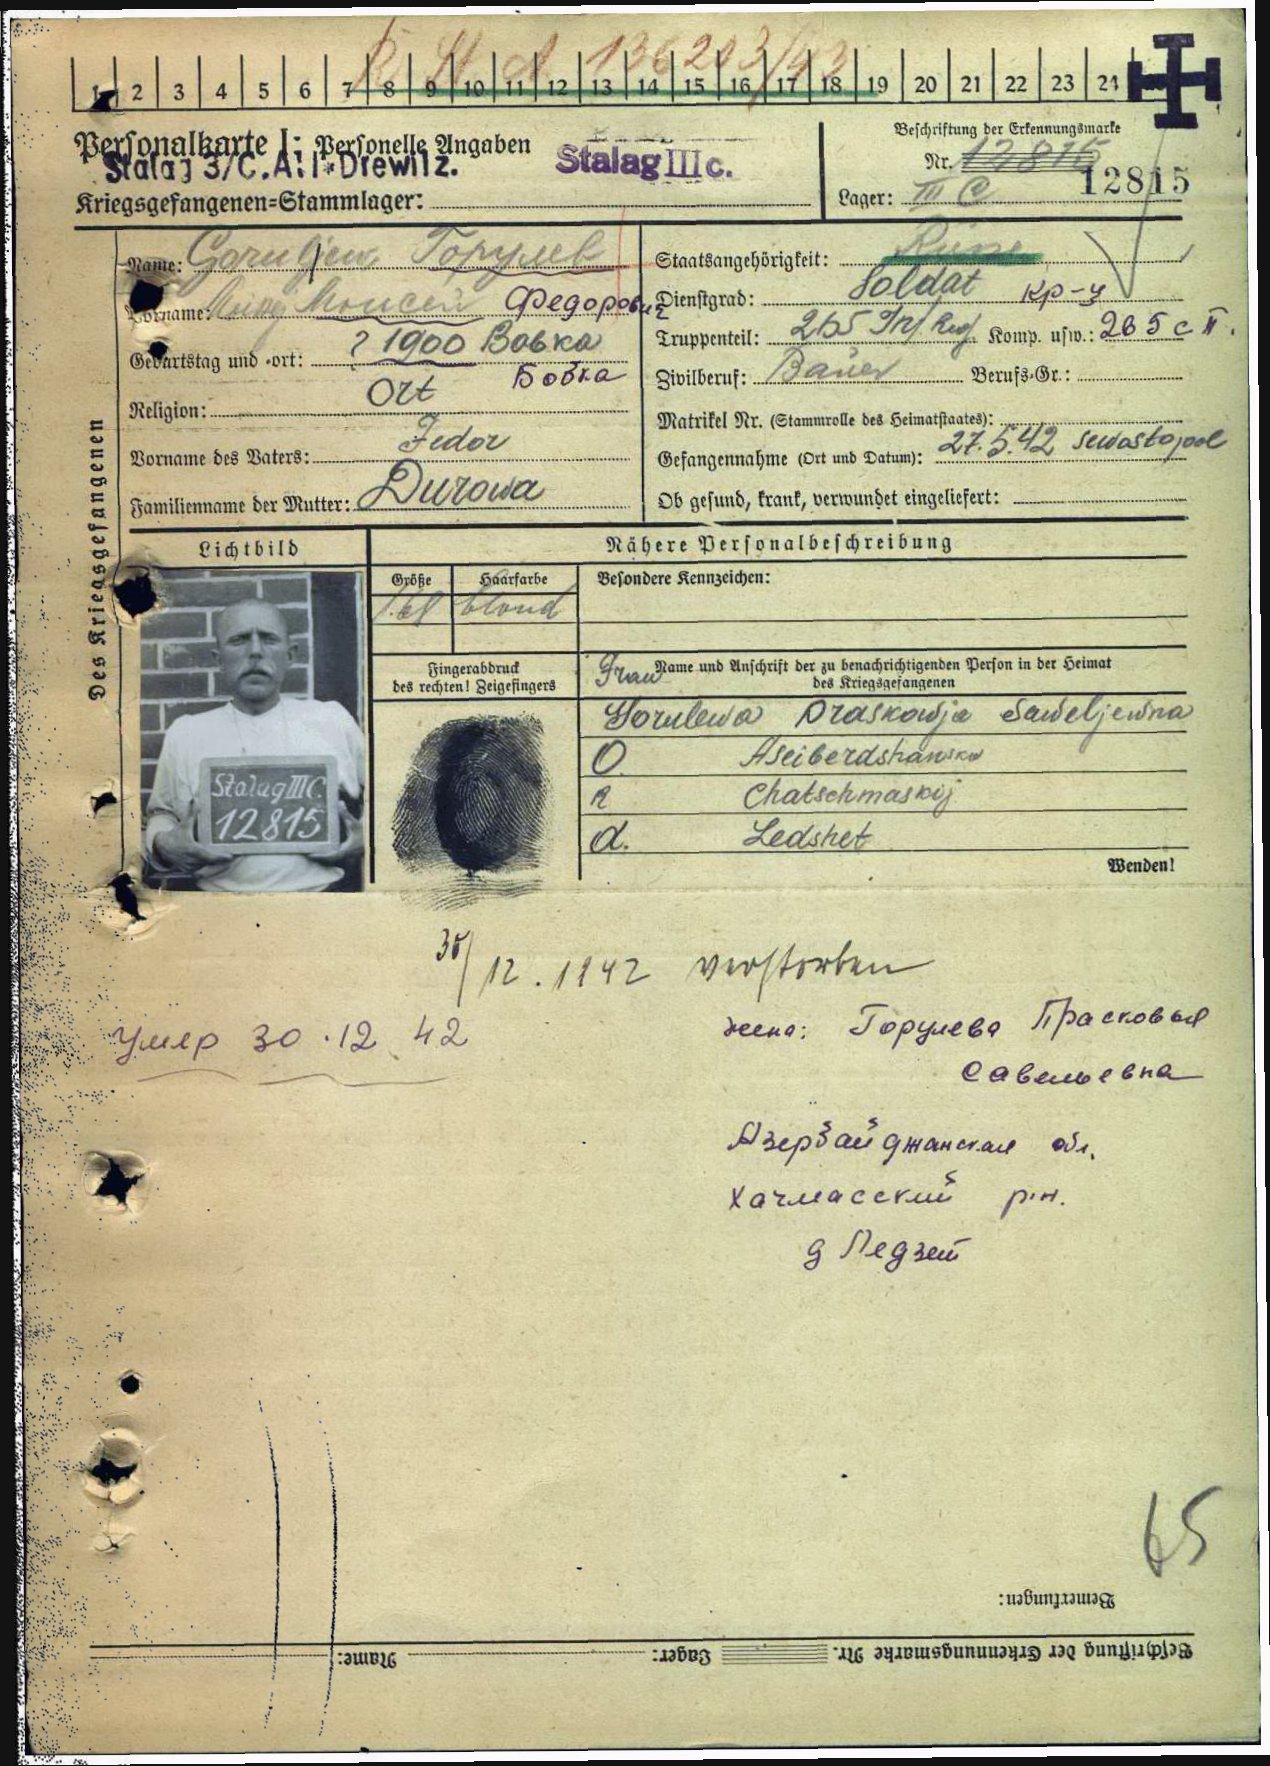 R. St. A 136203/43
1 2 3 4 5 6 7 8 9 10 11 12 13 14 15 16 17 18 19 20 21 22 23 24
Personalkarte I: Personelle Angaben
Stalag 3/C. Alt-Drewitz.
Stalag III c.
Kriegsgefangenen-Stammlager:
Beschriftung der Erkennungsmarke
Nr. 12815
12815
Lager: III C
Des Kriegsgefangenen
Name: Горулев
Vorname: Моисей Федорович
Geburtstag und -ort: ? 1900 Bobka
Бобка
Ort
Religion:
Vorname des Vaters: Fedor
Familienname der Mutter: Durowa
Staatsangehörigkeit: Russe
Dienstgrad: Soldat кр-ц
Truppenteil: 265 Inf. Reg. Komp. usw.: 265 сп.
Zivilberuf: Bauer Berufs-Gr.:
Matrikel Nr. (Stammrolle des Heimatstaates):
Gefangennahme (Ort und Datum): 27.5.42 Sewastopol
Ob gesund, krank, verwundet eingeliefert:
Lichtbild
Nähere Personalbeschreibung
Größe Haarfarbe Besondere Kennzeichen:
1.61 blond
Fingerabdruck
des rechten! Zeigefingers
Frau Name und Anschrift der zu benachrichtigenden Person in der Heimat
des Kriegsgefangenen
Gorulewa Praskowja Saweljewna
O. Aseiberdshansko
R Chatschmaskij
d. Ledshet
Wenden!
Stalag III C.
12815
30/12.1942 verstorben
Умер 30.12 42
жена: Горулева Прасковья
Савельевна
Азербайджанская обл.
Хачмасский р-н.
д Ледзет
65
Bemerkungen:
Beschriftung der Erkennungsmarke Nr. Lager: Name: